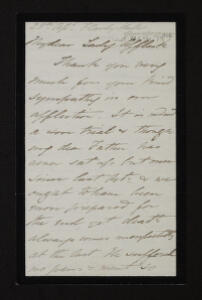 My dear Lady
Thank you very
much for your kind
sympathy in our
affliction. It is indeed
a sore trial & though
my dear Father has
never sat up but once
since last Oct: & we
ought to have been
more prepared for
the end yet death
always comes unexpectedly
at the last. He suffered
no pain & went to